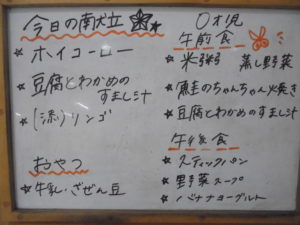 今日の献立
ホイコーロー
豆腐とわかめの
すまし汁
(流)リンゴ
おやつ
牛乳・ざぜん豆
0才児
午前食
米粥 蒸し野菜
鮭のちゃんちゃん焼き
豆腐とわかめのすまし汁
午後食
スティックパン
野菜スープ
バナナヨーグルト